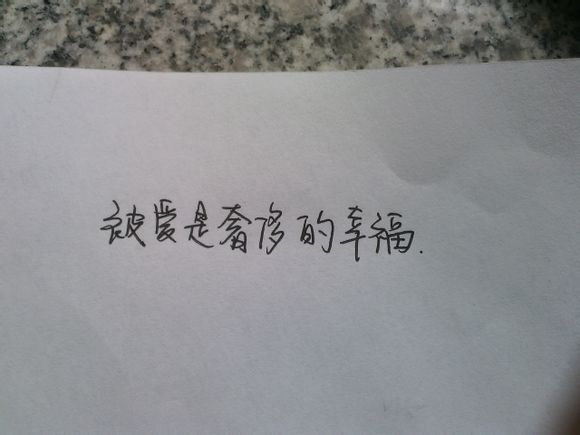 被爱是奢侈的幸福.